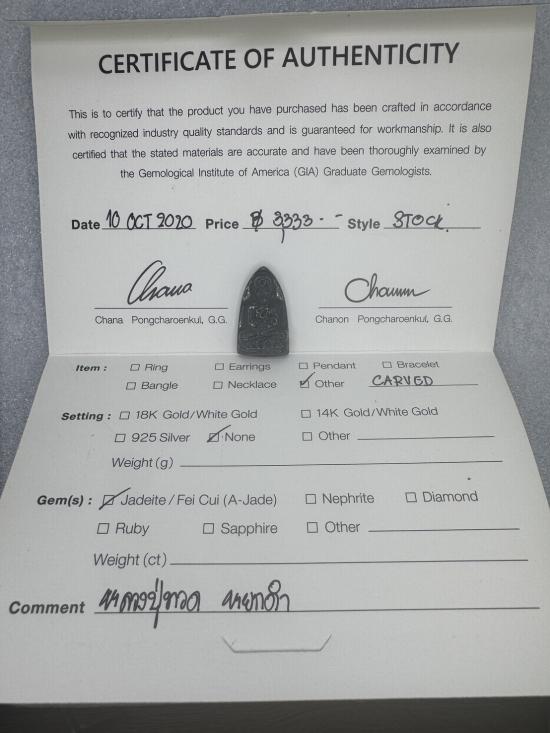 CERTIFICATE OF AUTHENTICITY
This is to certify that the product you have purchased has been crafted in accordance
with recognized industry quality standards and is guaranteed for workmanship. It is also
certified that the stated materials are accurate and have been thoroughly examined by
the Gemological Institute of America (GIA) Graduate Gemologists.
Date 10 OCT 2020 Price ฿ 3,333.- Style STOCK
Chana Chanon
Chana Pongcharoenkul, G.G. Chanon Pongcharoenkul, G.G.
Item : Ring Earrings Pendant Bracelet
Bangle Necklace Other CARVED
Setting : 18K Gold/White Gold 14K Gold/White Gold
925 Silver None Other
Weight (g)
Gem(s) : Jadeite / Fei Cui (A-Jade) Nephrite Diamond
Ruby Sapphire Other
Weight (ct)
Comment หลวงปู่ทวด หยกดำ